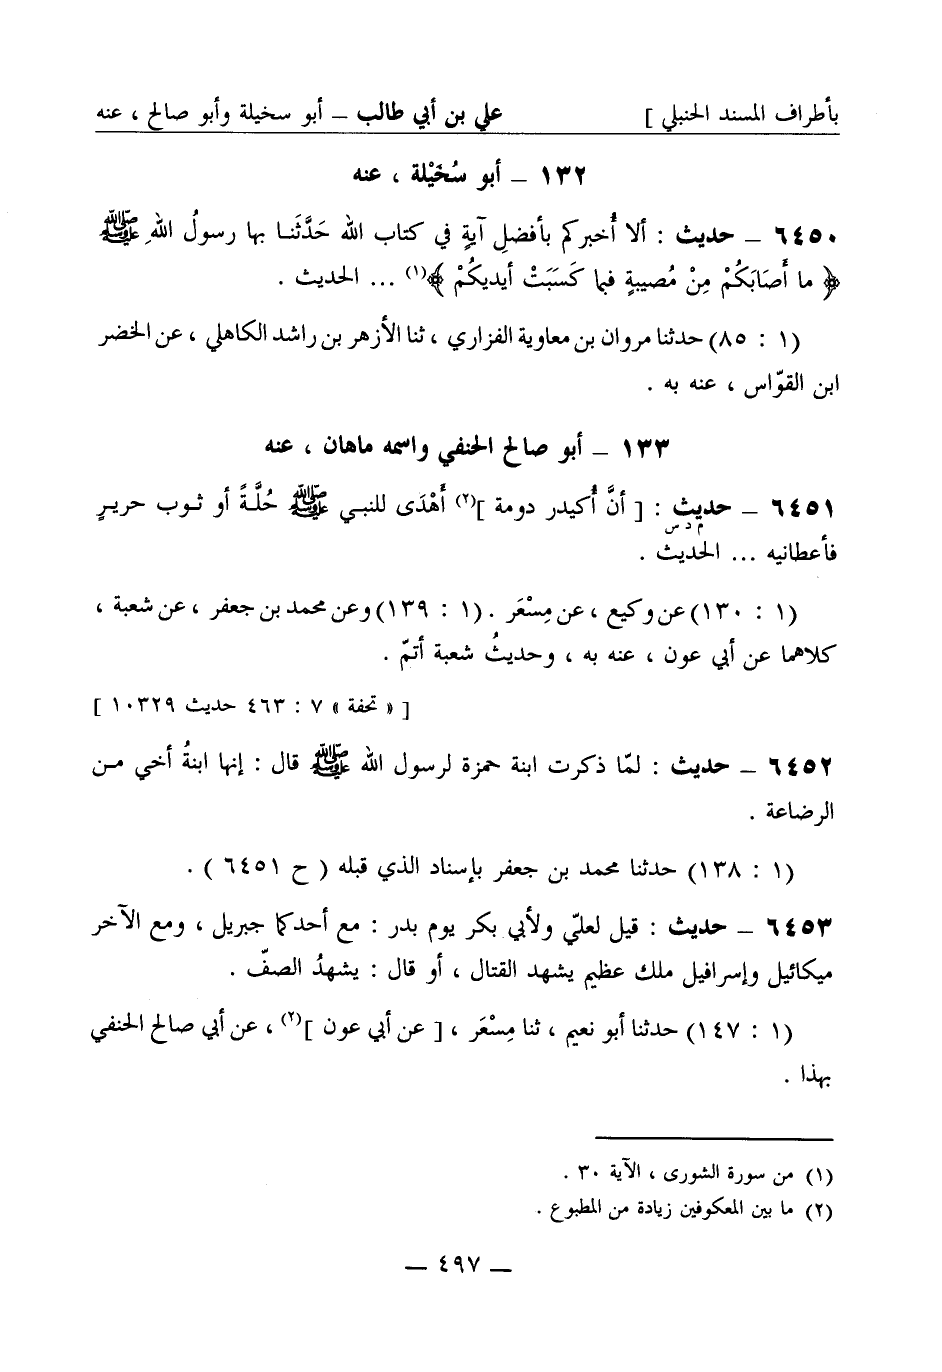 بأطراف المسند الحنبلي ] علي بن أبي طالب – أبو سخيلة وأبو صالح ، عنه
١٣٢ – أبو سُخَيْلة ، عنه
٦٤٥٠ – حديث : ألا أُخبركم بأفضلِ آيةٍ في كتاب الله حَدَّثَنا بها رسولُ اللهِ ﷺ
﴿ ما أَصَابَكُمْ مِنْ مُصيبةٍ فبما كَسَبَتْ أيديكُمْ ﴾(١) ... الحديث .
(١ : ٨٥) حدثنا مروان بن معاوية الفزاري ، ثنا الأزهر بن راشد الكاهلي ، عن الخضر
ابن القوّاس ، عنه به .
١٣٣ – أبو صالح الحنفي واسمه ماهان ، عنه
٦٤٥١ – حديث : [ أنَّ أُكيدر دومة ](٢) أَهْدَى للنبي ﷺ حُلَّةً أو ثوب حريرٍ
م د س
فأعطانيه ... الحديث .
(١ : ١٣٠) عن وكيع ، عن مِسْعَر . (١ : ١٣٩) وعن محمد بن جعفر ، عن شعبة ،
كلاهما عن أبي عون ، عنه به ، وحديثُ شعبة أتمّ .
[ « تحفة » ٧ : ٤٦٣ حديث ١٠٣٢٩ ]
٦٤٥٢ – حديث : لمّا ذكرت ابنة حمزة لرسول الله ﷺ قال : إنها ابنةُ أخي من
الرضاعة .
(١ : ١٣٨) حدثنا محمد بن جعفر بإسناد الذي قبله ( ح ٦٤٥١ ) .
٦٤٥٣ – حديث : قيل لعليّ ولأبي بكر يوم بدر : مع أحدكما جبريل ، ومع الآخر
ميكائيل وإسرافيل ملك عظيم يشهد القتال ، أو قال : يشهدُ الصفّ .
(١ : ١٤٧) حدثنا أبو نعيم ، ثنا مِسْعَر ، [ عن أبي عون ](٢) ، عن أبي صالح الحنفي
بهذا .
(١) من سورة الشورى ، الآية ٣٠ .
(٢) ما بين المعكوفين زيادة من المطبوع .
– ٤٩٧ –